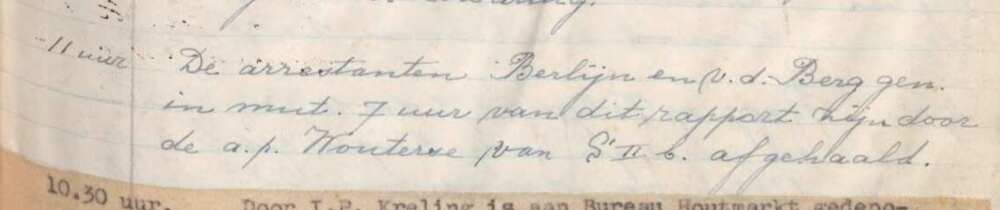 11 uur De arrestanten Berlijn en v.d. Berg gen.
in mut. 7 uur van dit rapport zijn door
de a.p. Wouterse van S II b. afgehaald.
10.30 uur. Door I.P. Kraling is aan Bureau Houtmarkt gedepo-